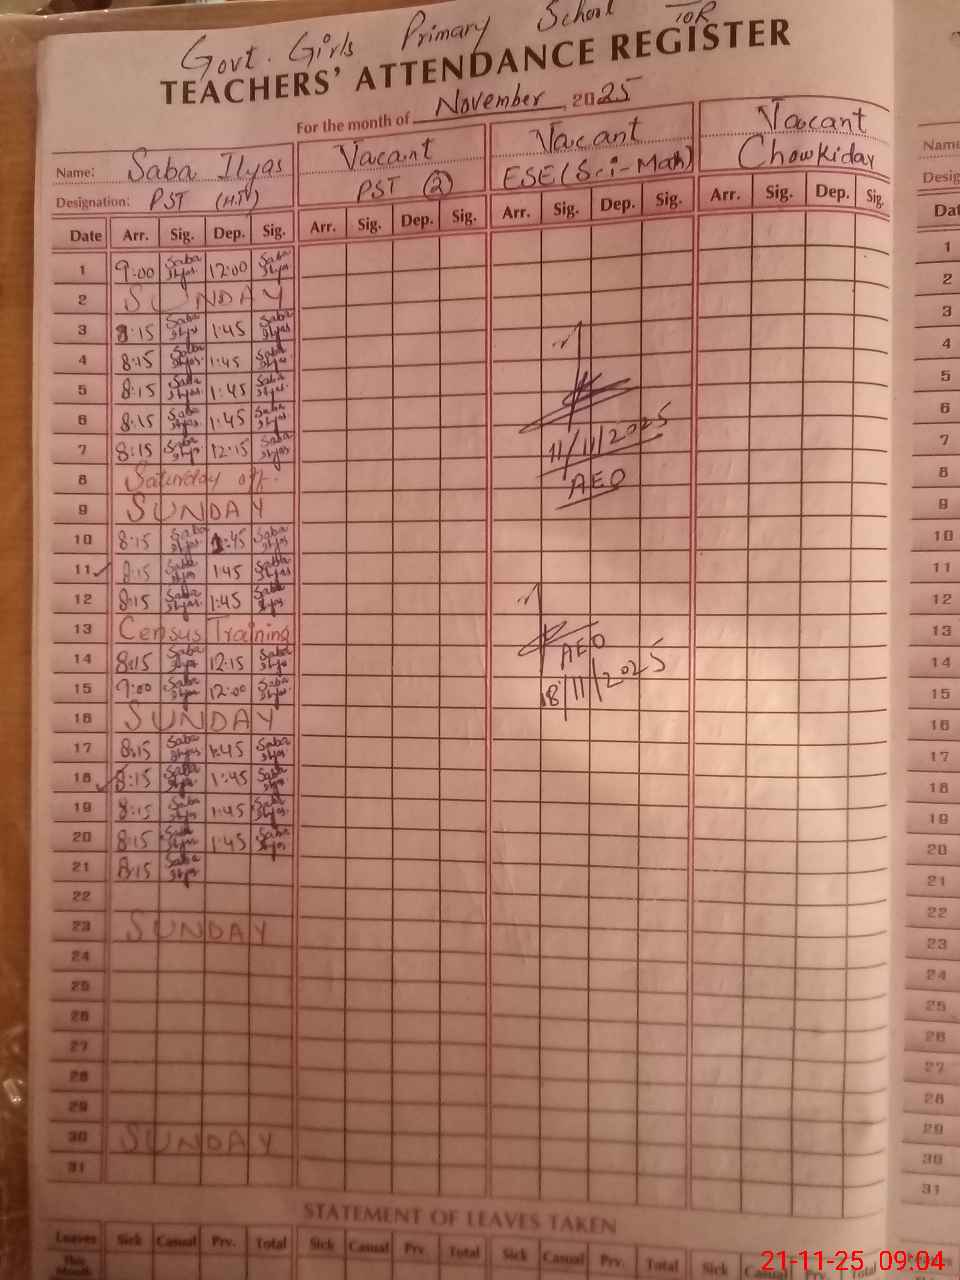 Govt. Girls Primary School TOR
TEACHERS' ATTENDANCE REGISTER
For the month of November, 2025
Name: Saba Ilyas Vacant Vacant Vacant
Designation: PST PST (2) ESE (Sci-Math) Chowkidar
Date Arr. Sig. Dep. Sig. Arr. Sig. Dep. Sig. Arr. Sig. Dep. Sig. Arr. Sig. Dep. Sig.
1 9:00 Saba Ilyas 12:00 Saba Ilyas
2 SUNDAY
3 8:15 Saba Ilyas 1:45 Saba Ilyas
4 8:15 Saba Ilyas 1:45 Saba Ilyas
5 8:15 Saba Ilyas 1:45 Saba Ilyas
6 8:15 Saba Ilyas 1:45 Saba Ilyas
7 8:15 Saba Ilyas 12:15 Saba Ilyas 11/11/2025
8 Saturday off. AEO
9 SUNDAY
10 8:15 Saba Ilyas 1:45 Saba Ilyas
11 8:15 Saba Ilyas 1:45 Saba Ilyas
12 8:15 Saba Ilyas 1:45 Saba Ilyas
13 Census Training
14 8:15 Saba Ilyas 12:15 Saba Ilyas AEO
15 9:00 Saba Ilyas 12:00 Saba Ilyas 18/11/2025
16 SUNDAY
17 8:15 Saba Ilyas 1:45 Saba Ilyas
18 8:15 Saba Ilyas 1:45 Saba Ilyas
19 8:15 Saba Ilyas 1:45 Saba Ilyas
20 8:15 Saba Ilyas 1:45 Saba Ilyas
21 8:15 Saba Ilyas
22
23 SUNDAY
24
25
26
27
28
29
30 SUNDAY
31
STATEMENT OF LEAVES TAKEN
Leaves Sick Casual Prv. Total Sick Casual Prv. Total Sick Casual Prv. Total Sick Casual Prv. Total
This Month
Name
Desig
Dat
1
2
3
4
5
6
7
8
9
10
11
12
13
14
15
16
17
18
19
20
21
22
23
24
25
26
27
28
29
30
31
21-11-25 09:04